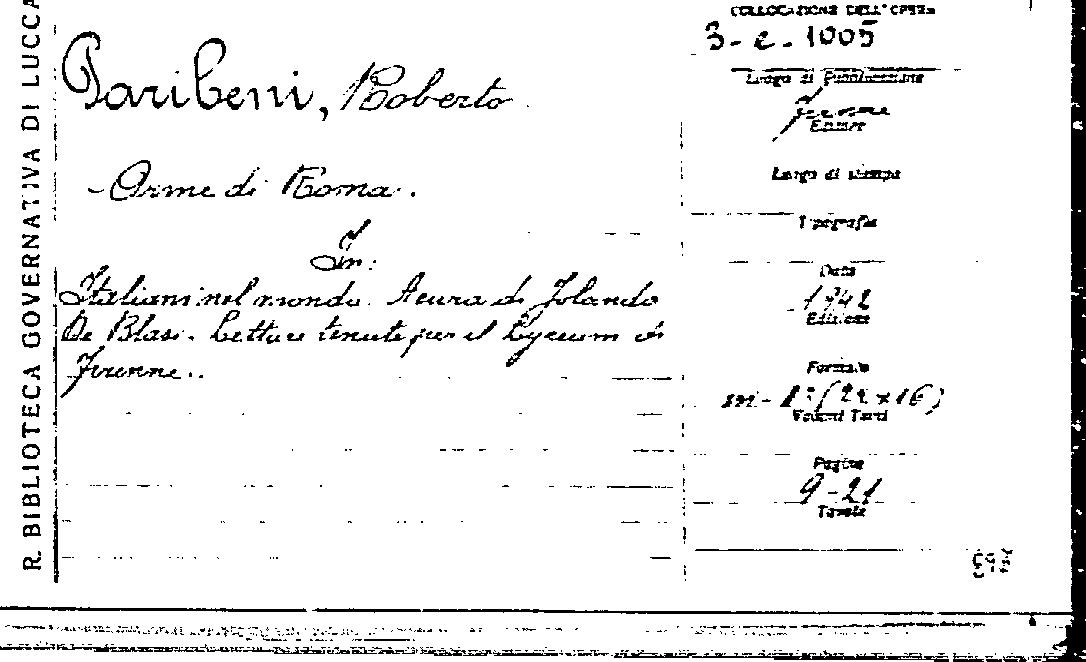 R. BIBLIOTECA GOVERNATIVA DI LUCCA
Paribeni, Roberto
- Orme di Roma.
In:
Italiani nel mondo. A cura di Jolanda
De Blasi. Letture tenute per il Lyceum di
Firenze..
COLLOCAZIONE DELL'OPERA
3-e-1005
Luogo di Pubblicazione
Firenze
Editore
Luogo di stampa
Tipografia
Data
1942
Edizione
Formato
in-8°(22x16)
Volumi Tomi
Pagine
9-21
Tavole